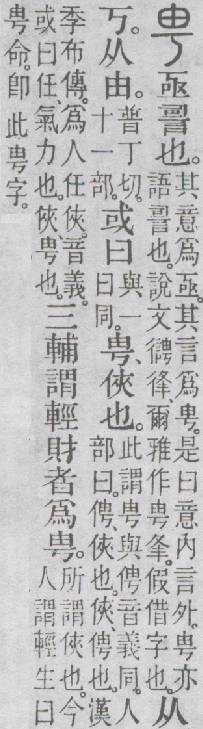 甹亟䛐也。其意爲亟。其言爲甹。是曰意內言外。甹亦語䛐也。說文𢓳㣔、爾雅作甹夆。假借字也。从
丂。从由。普丁切。十一部。或曰與一曰同。甹、俠也。此謂甹與俜音義同。人部曰。俜、俠也。俠、俜也。漢
季布傳。爲人任俠。音義。或曰任、氣力也。俠、甹也。三輔謂輕財者爲甹。所謂俠也。今人謂輕生曰
甹命。卽此甹字。